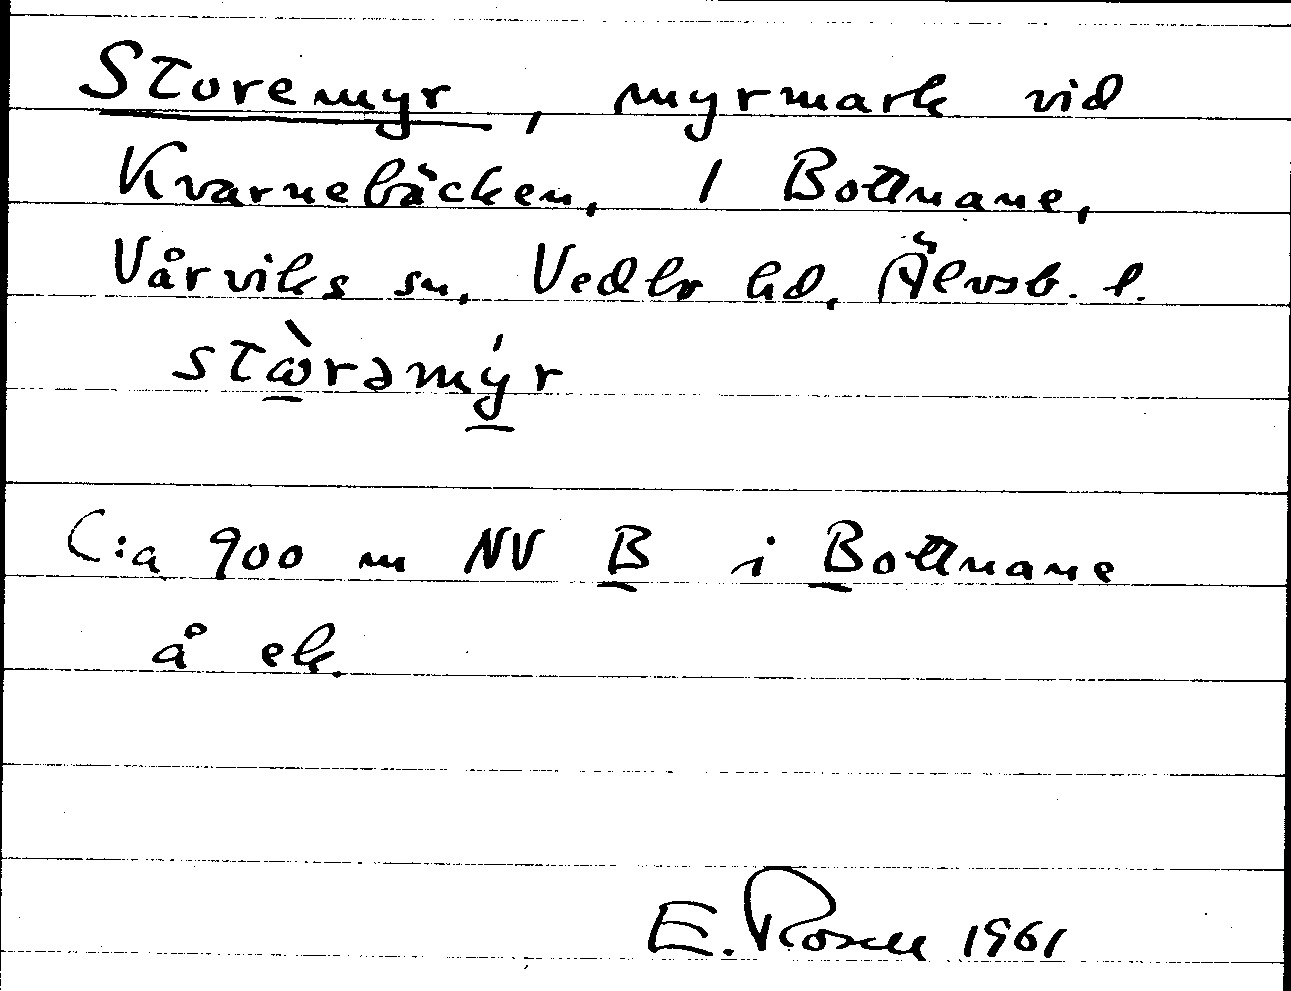 Storemyr, myrmark vid
Kvarnebäcken, 1 Bottnane,
Vårviks sn, Vedbo hd, Älvsb. l.
stὼrəmýr
C:a 900 m NV B i Bottnane
å ek.
E. Rosell 1961